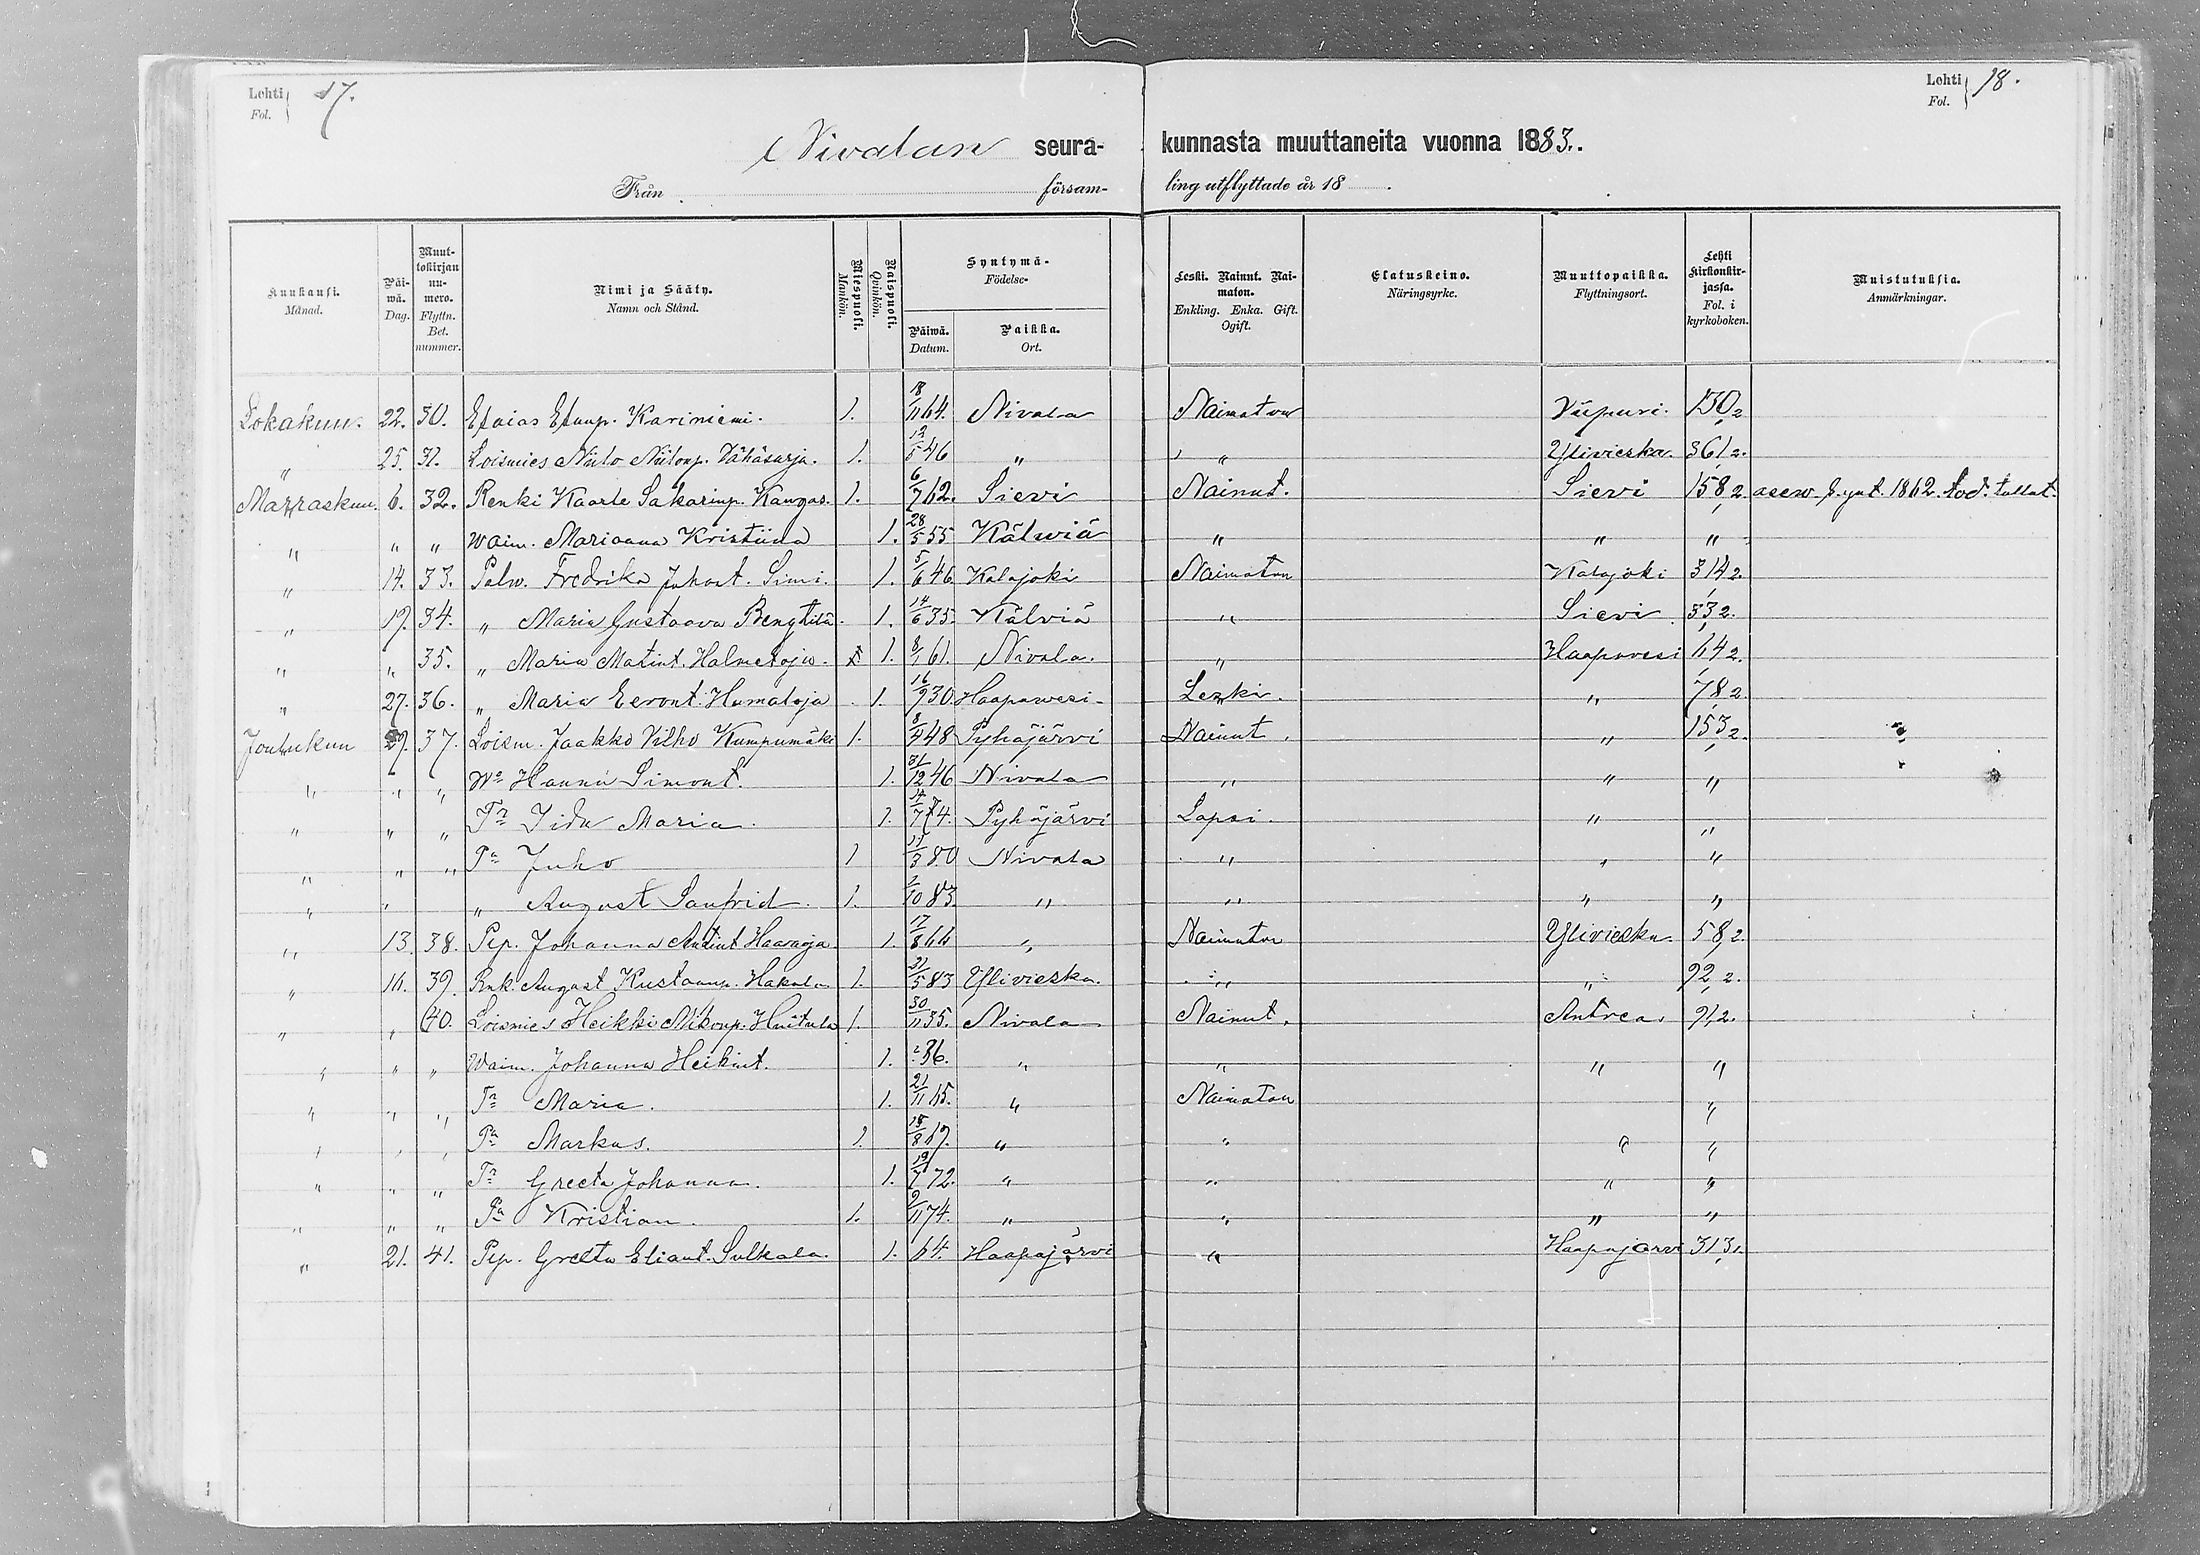 Lehti Fol. 17.
Lehti Fol. 18.
Nivalan seurakunnasta muuttaneita vuonna 1883.
Från församling utflyttade år 18 .
Kuukausi. Månad. Päiwä. Dag. Muuttokirjan numero. Flyttn. Bet. nummer. Nimi ja Sääty. Namn och Stånd. Miespuoli. Mankön. Naispuoli. Qvinkön. Syntymä- Födelse- Päiwä. Datum. Paikka. Ort. Leski. Nainut. Naimaton. Enkling. Enka. Gift. Ogift. Elatuskeino. Näringsyrke. Muuttopaikka. Flyttningsort. Lehti kirkonkirjassa. Fol. i kyrkoboken. Muistutuksia. Anmärkningar.
Lokakuu. 22. 30. Esaias Esaup. Kariniemi. 1. 18/11 64. Nivala Naimaton Viipuri. 130,2
" 25. 31. Loismies Niilo Niilonp. Vähäsarja. 1. 12/5 46 " " Ylivieska. 361,2.
Marraskuu. 6. 32. Renki Kaarle Sakarinp. Kangas. 1. 6/7 62. Sievi Nainut. Sievi 158,2 1862. tod. tullut.
" " " Waim. Marianna Kristiina 1. 28/5 55 Kälwiä " " "
" 14. 33. Palw. Fredrika Juhont. Simi. 1. 5/6 46 Kalajoki Naimaton Kalajoki 314,2.
" 19. 34. " Maria Gustaava Bengtilä. 1. 14/6 35. Kälviä " Sievi 33,2.
" " 35. " Maria Matint. Halmetoja. 1. 8/1 61. Nivala. " Haapavesi 64,2.
" 27. 36. " Maria Eeront. Humaloja 1. 16/9 30. Haapawesi. Leski. " 78,2
Joulukuu 29. 37. Loism. Jaakko Vilho Kumpumäki 1. 8/4 48 Pyhäjärvi Nainut. " 153,2.
" " " Wo Hanna Simont. 1. 31/12 46 Nivala " " "
" " " Tr Iida Maria. 1. 14/7 74. Pyhäjärvi Lapsi. " "
" " " Pa Juho 1 11/3 80 Nivala " " "
" " " August Sanfrid. 1. 2/10 83. " " " "
" 13. 38. Pip. Johanna Antint Haaraoja 1. 17/8 66 " Naimaton Ylivieska. 58,2.
" 16. 39. Rnk. August Kustaanp. Hakala 1. 21/5 83 Ylivieska. " " 92,2.
" " 40. Loismies Heikki Mikonp. Huitula 1. 30/11 35. Nivala Nainut. Antrea. 91,2.
" " " Waim. Johanna Heikint. 1. 36. " " " "
" " " Tr Maria. 1. 21/11 65. " Naimaton "
" " " Pa Markus. 1. 18/8 69. " " " "
" " " Tr Greeta Johanna. 1. 19/7 72. " " " "
" " " Pa Kristian. 1. 9/11 74. " " " "
" 21. 41. Pip. Greeta Eliant. Sulkala. 1. 64. Haapajärvi " Haapajärvi 313,1.